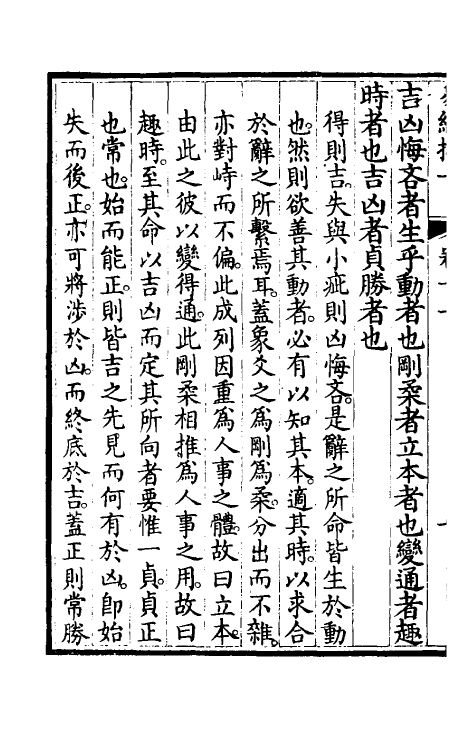 吉凶悔吝者生乎動者也剛柔者立本者也變通者趣
時者也吉凶者貞勝者也
得則吉。失與小疵則凶悔吝。是辭之所命皆生於動
也。然則欲善其動者。必有以知其本。適其時。以求合
於辭之所繫焉耳。蓋象爻之為剛為柔。分出而不雜。
亦對峙而不偏。此成列因重為人事之體。故曰立本。
由此之彼以變得通。此剛柔相推為人事之用。故曰
趣時。至其命以吉凶而定其所向者要惟一貞。貞正
也常也。始而能正。則皆吉之先見而何有於凶。即始
失而後正。亦可將涉於凶。而終底於吉。蓋正則常勝